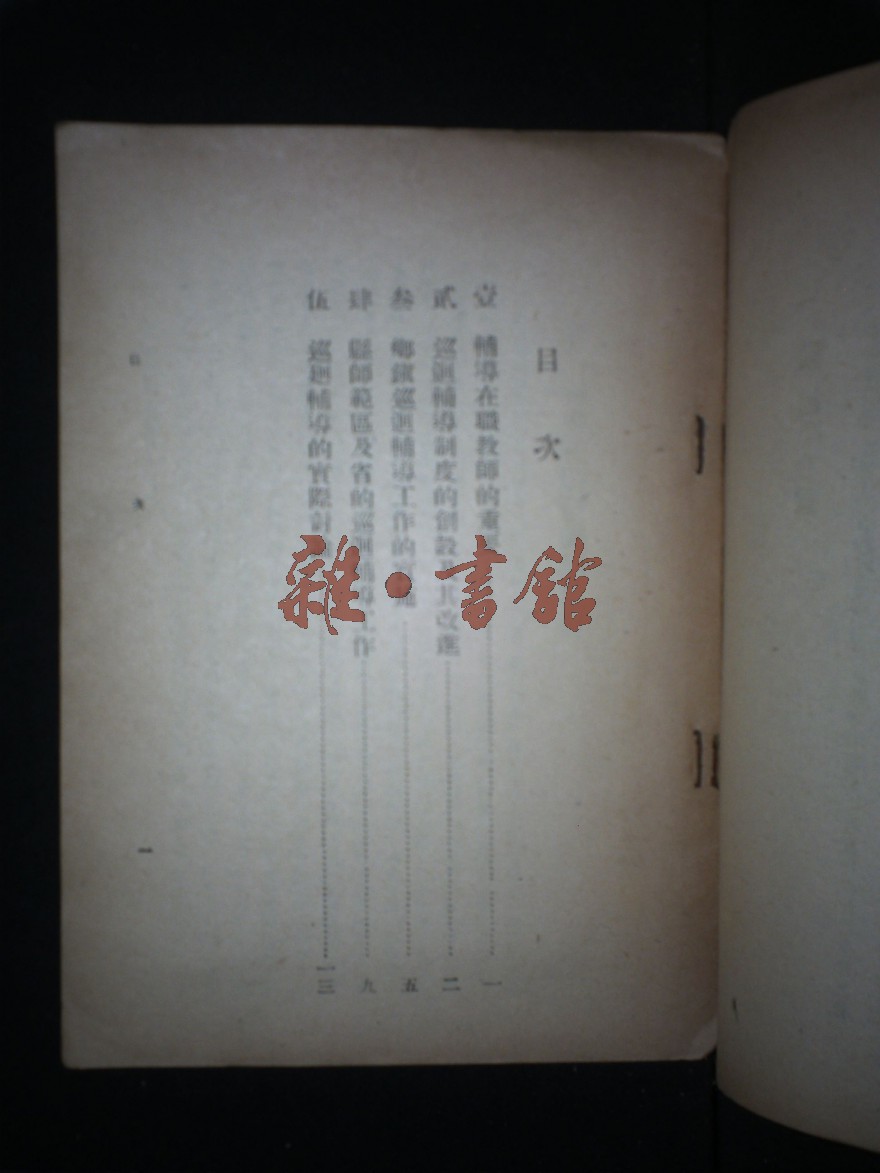 目次
壹 輔導在職教師的重 一
貳 巡迴輔導制度的創設及其改進 二
叁 鄉鎮巡迴輔導工作的實施 五
肆 縣師範區及省的巡迴輔導工作 九
伍 巡迴輔導的實際計 一三
目 次 一
雜·書館